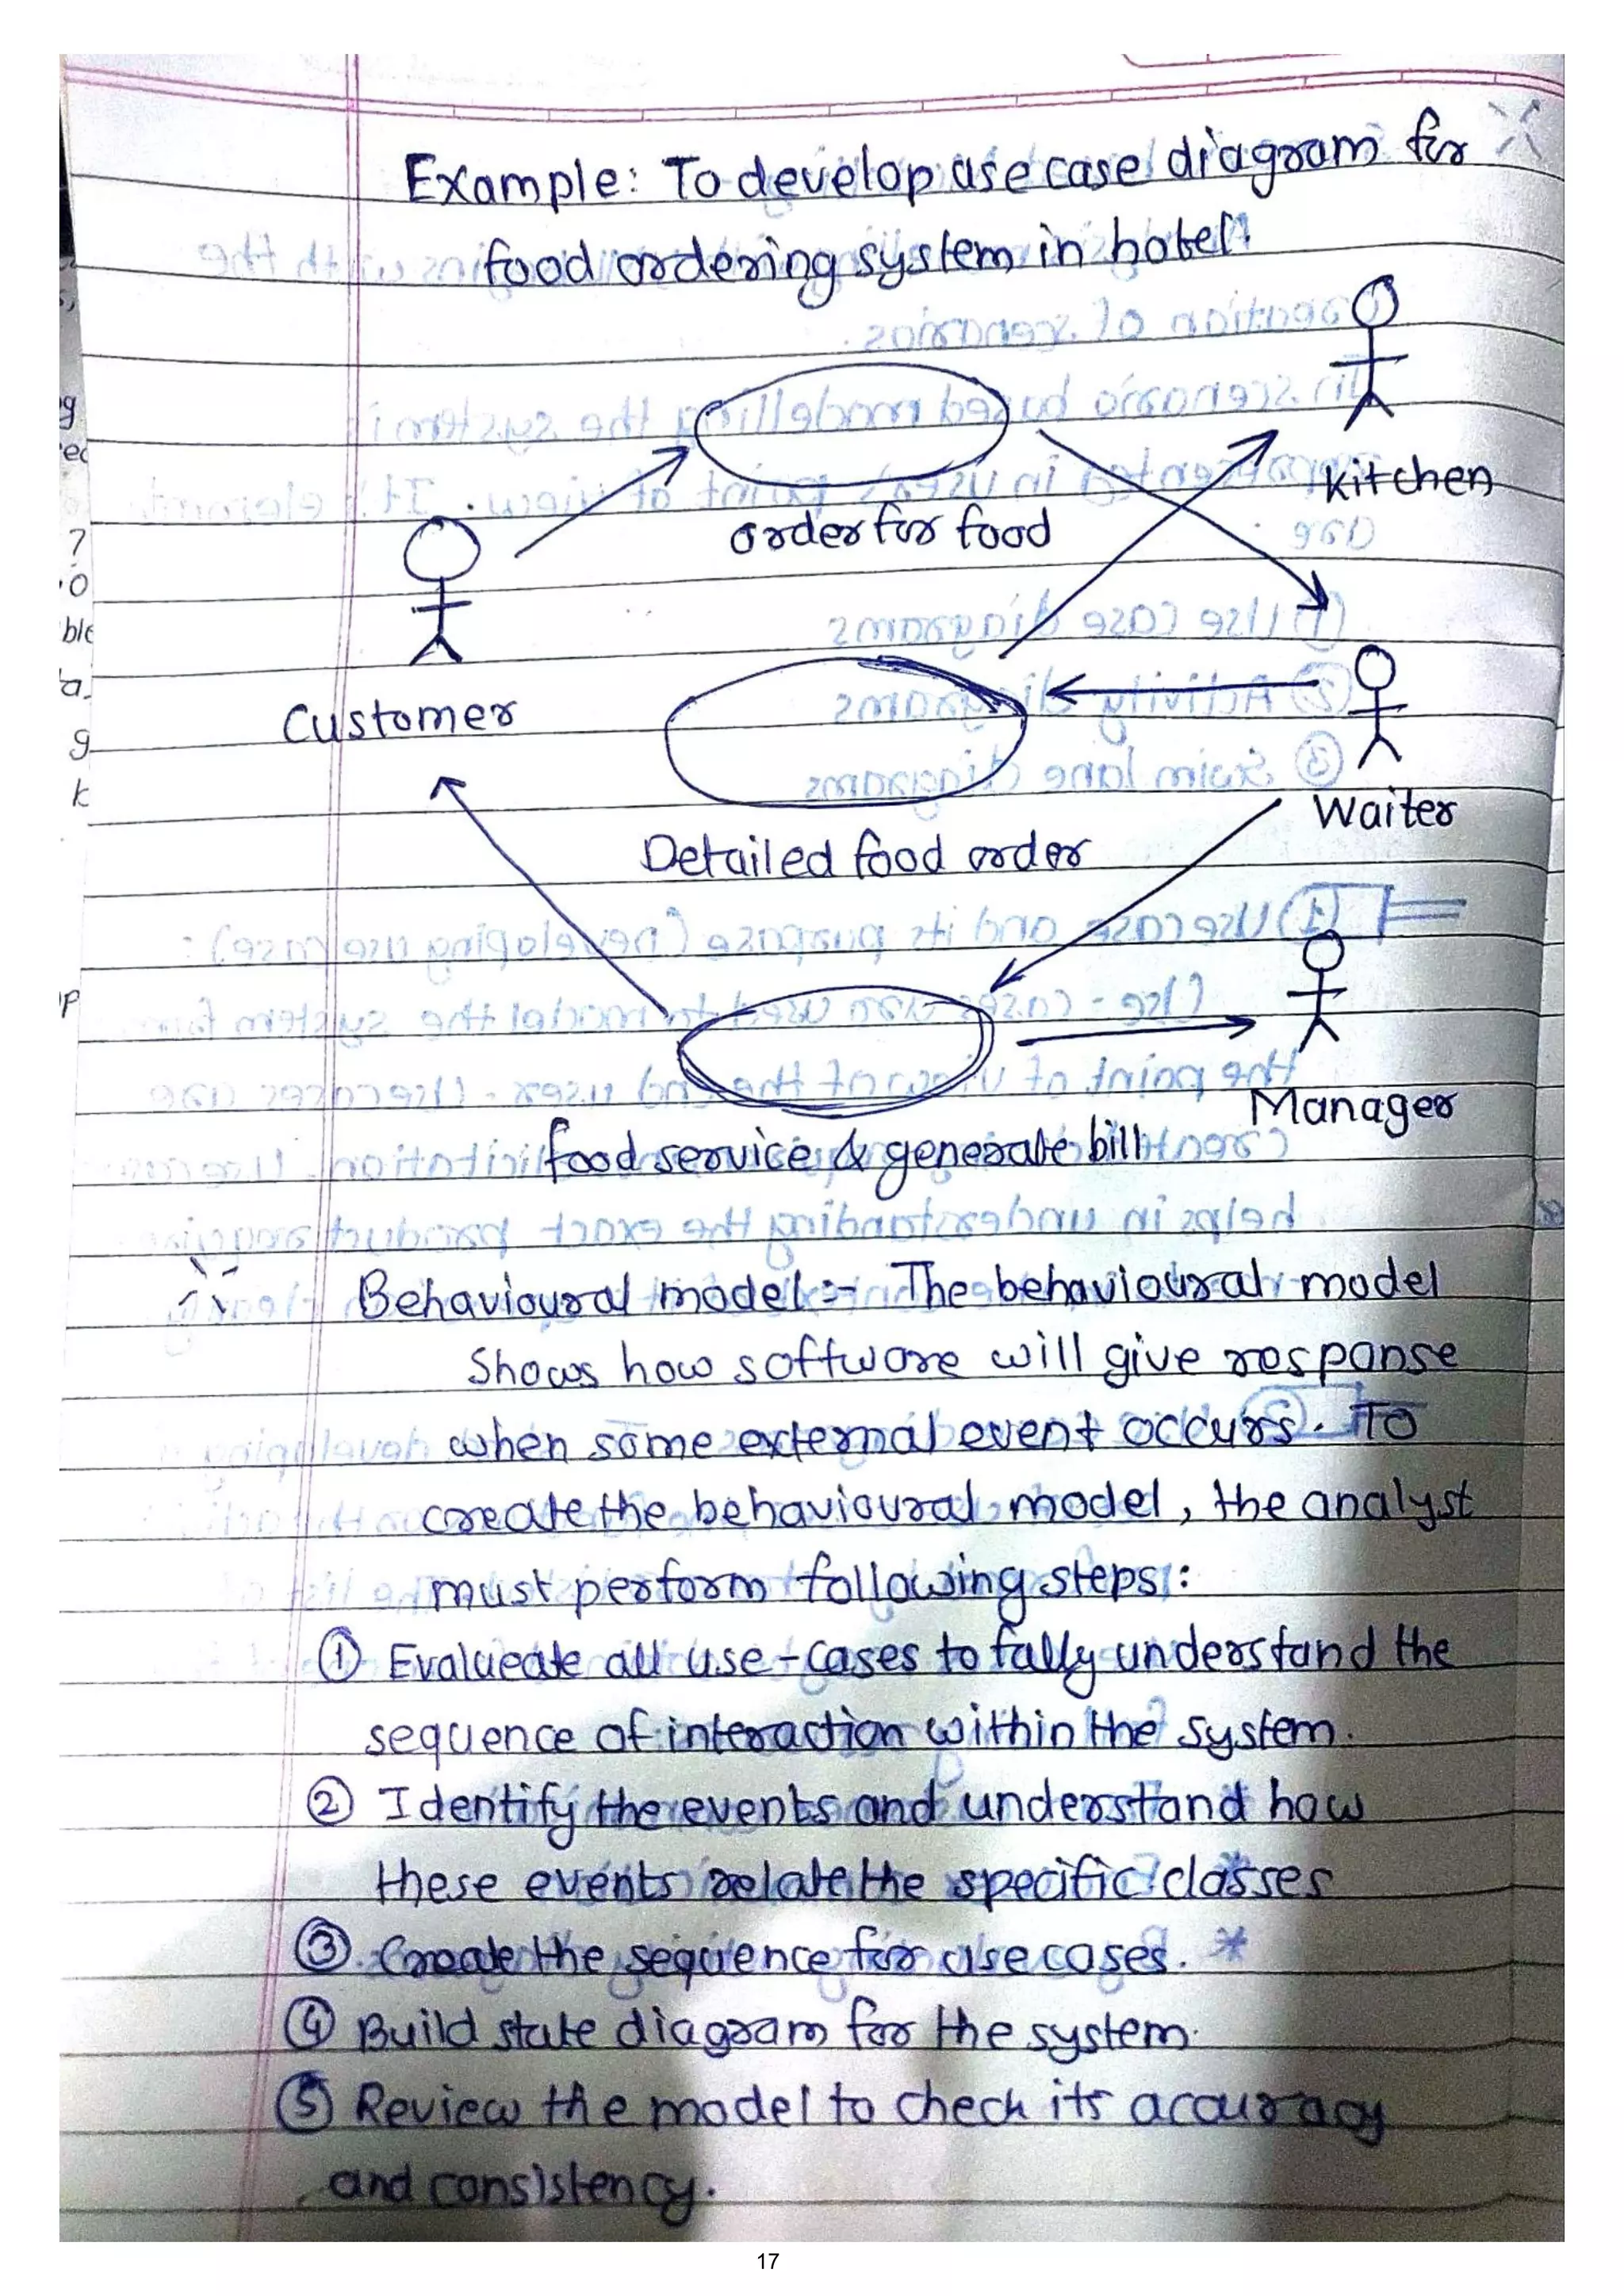 Example: To develop use case diagram for
food ordering system in hotel.
Kitchen
order for food
Customer
Waiter
Detailed food order
Manager
food service & generate bill
Behavioural model :- The behavioural model
Shows how software will give response
when some external event occurs. To
create the behavioural model, the analyst
must perform following steps:
① Evalueate all use-cases to fully understand the
sequence of interaction within the system.
② Identify the events and understand how
these events relate the specific classes
③ Create the sequence for use cases. *
④ Build state diagram for the system.
⑤ Review the model to check its accuracy
and consistency.
17